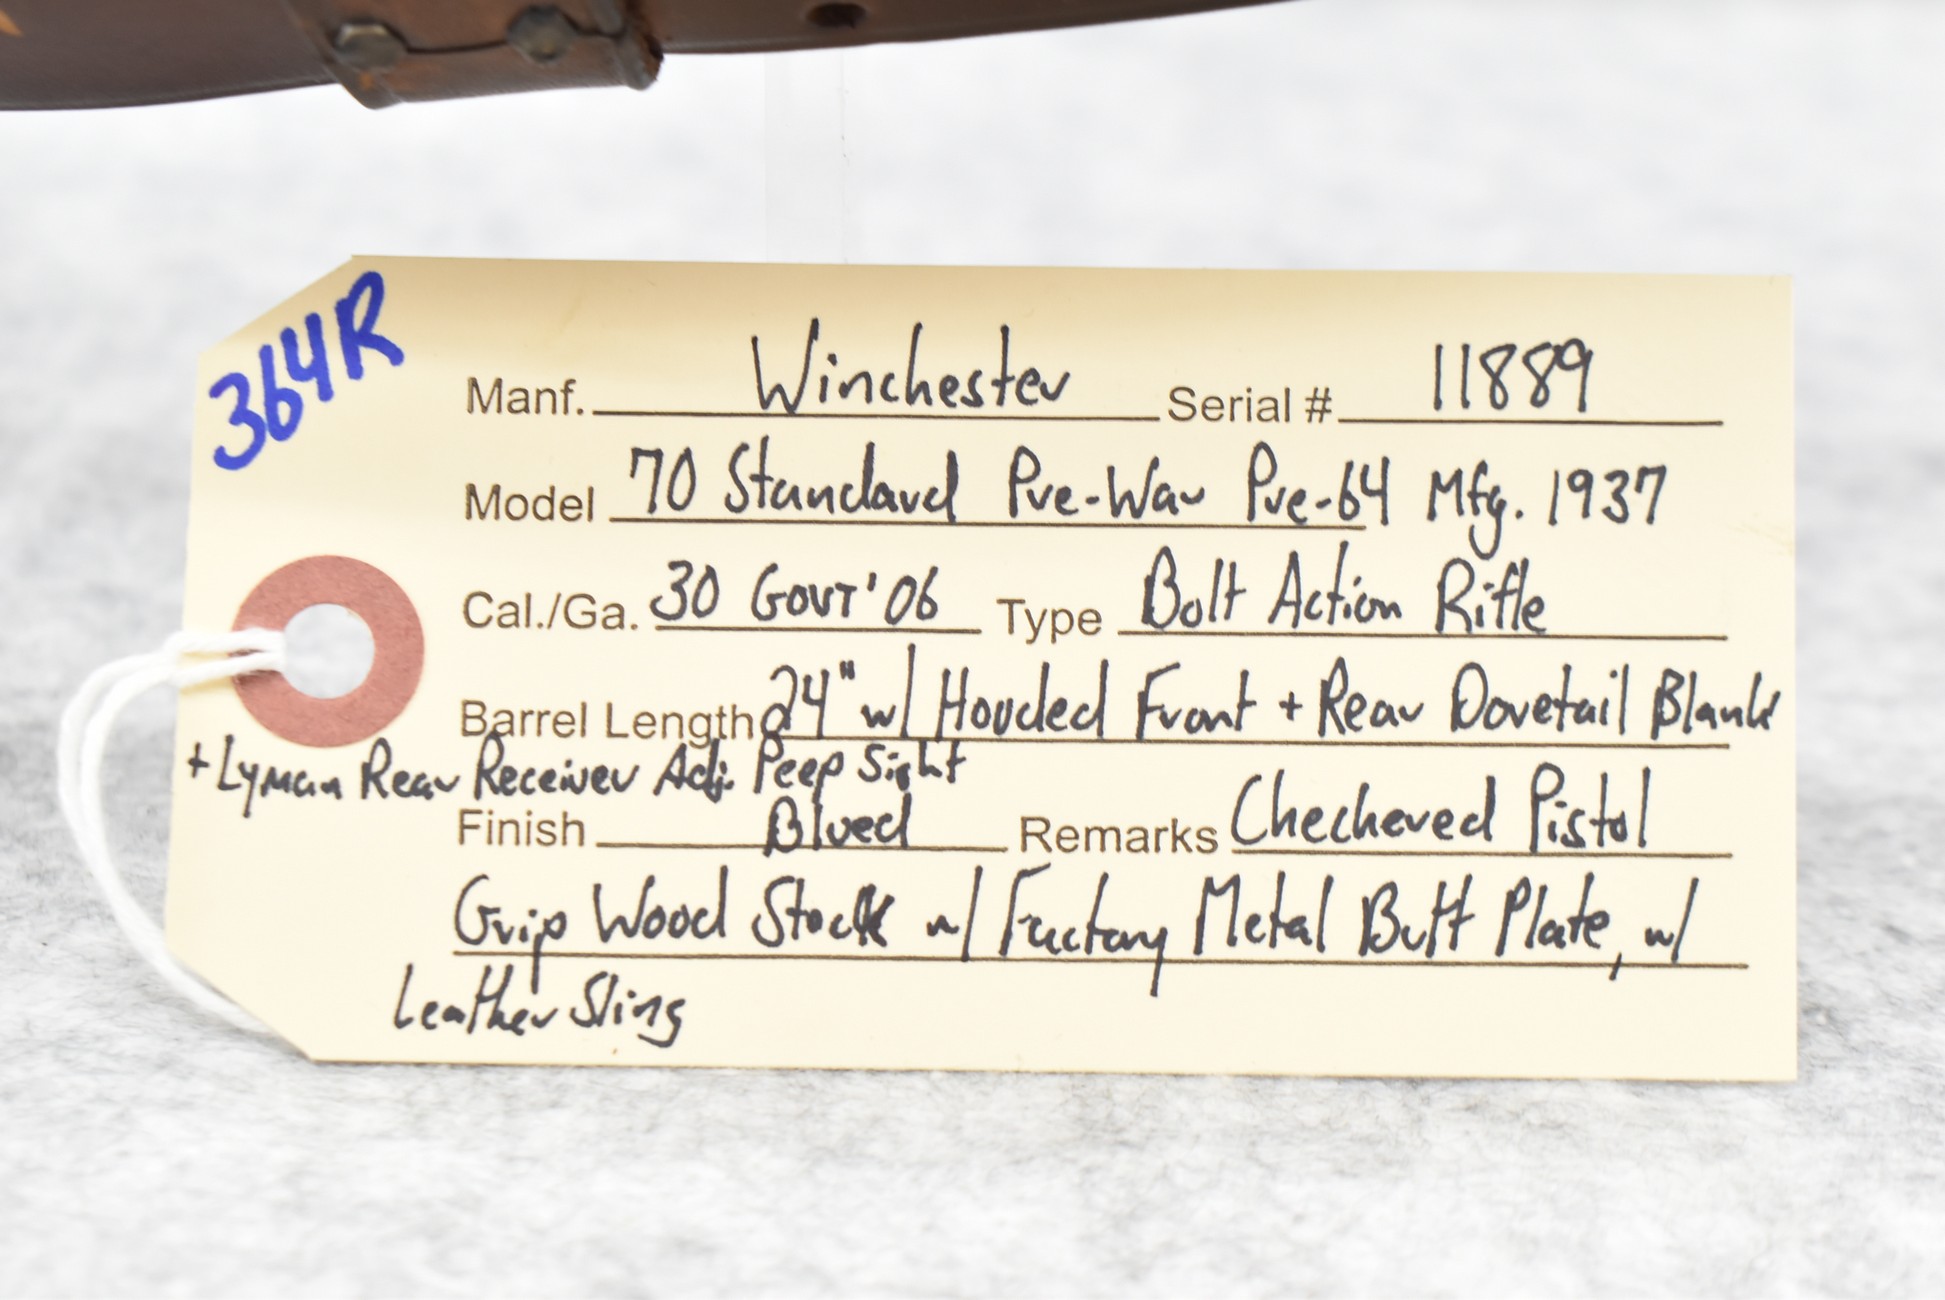 364R
Manf. Winchester Serial # 11889
Model 70 Standard Pre-War Pre-64 Mfg. 1937
Cal./Ga. 30 GOVT '06 Type Bolt Action Rifle
Barrel Length 24" w/ Hooded Front + Rear Dovetail Blank
+ Lyman Rear Receiver Adj. Peep Sight
Finish Blued Remarks Checkered Pistol
Grip Wood Stock w/ Factory Metal Butt Plate, w/
Leather Sling